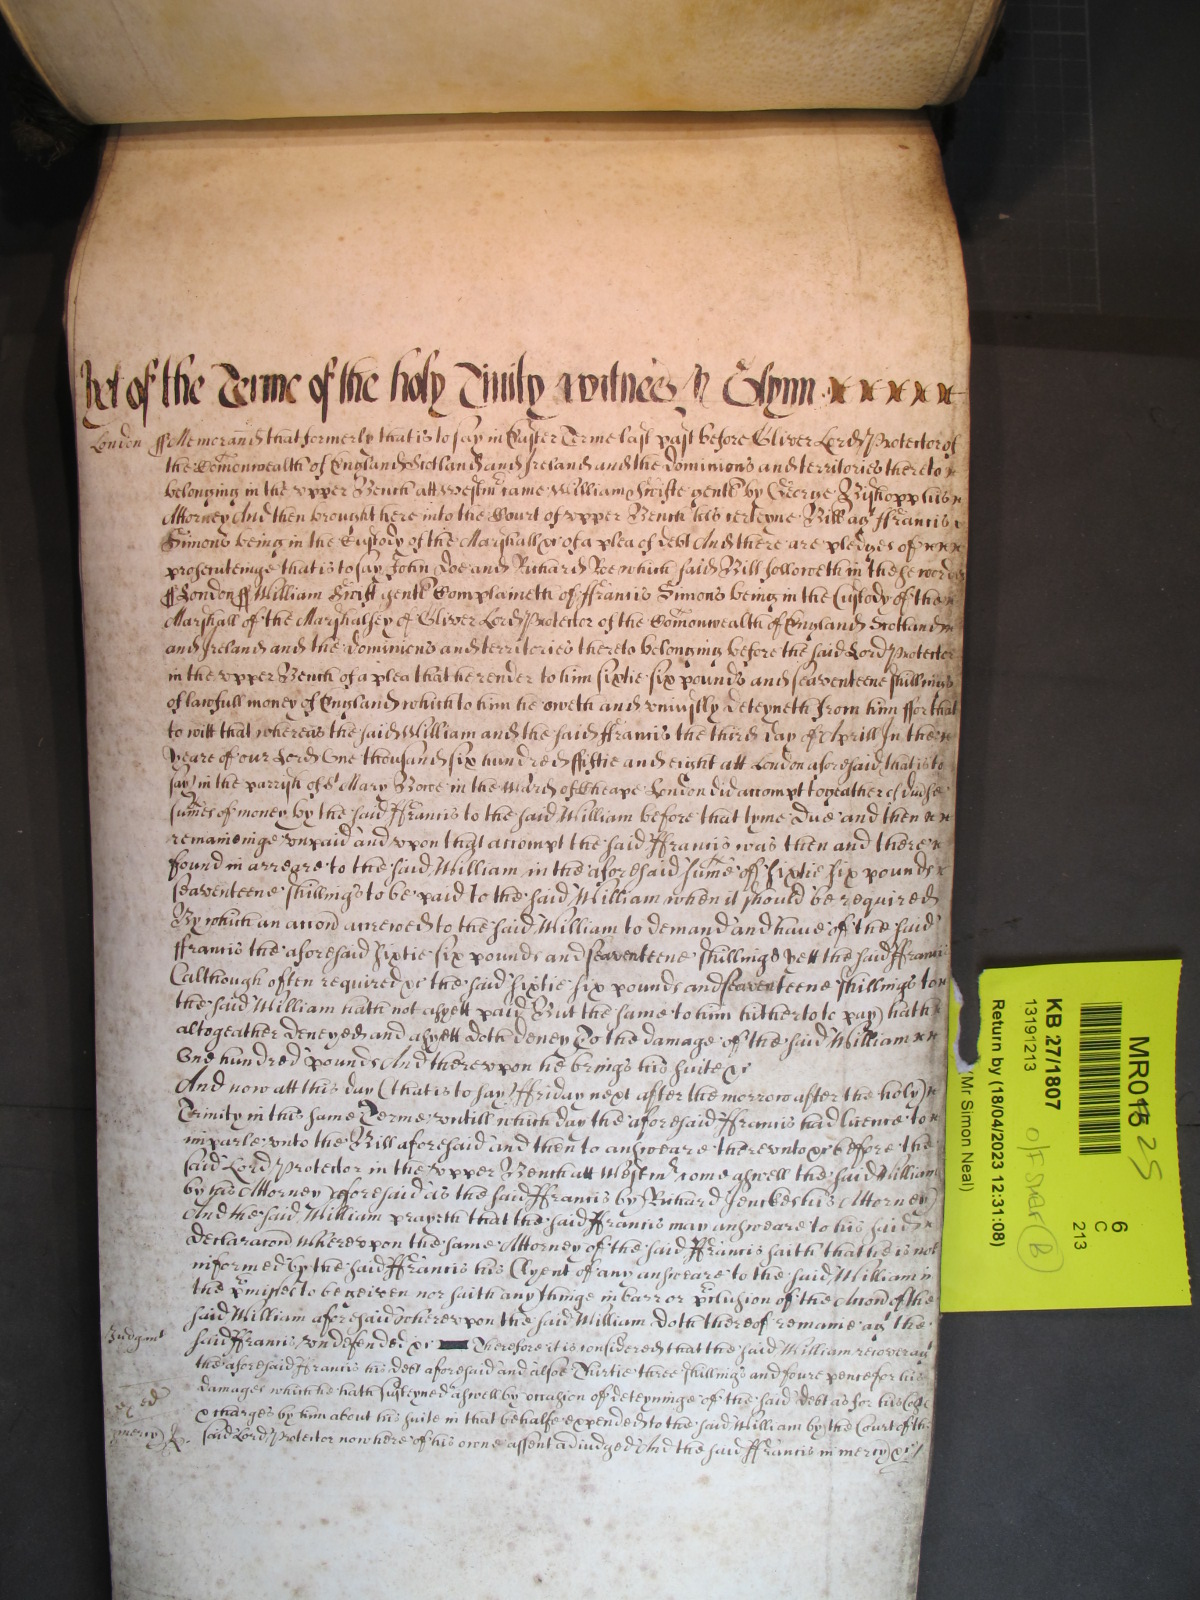 Yet of the Terme of the holy Trinity witnes Jo Glynn x x x x x
London ss Memorand that formerly that is to say in Easter Terme last past before Oliver Lord Protector of
the Comonwealth of England Scotland and Ireland and the dominions and territories thereto x
belonging in the upper Bench att Westm came William Swifte gentl by George Bishopp his x
Attorney And then brought here into the Court of upper Bench his certeyne Bill agt ffrancis x
Simons being in the Custody of the Marshall &c of a plea of debt And there are pledges of x x x
prosecuteinge that is to say John Doe and Richard Roe which said Bill followeth in these words
ss London ss William Swift gentl Complaineth of ffrancis Simons being in the Custody of the x
Marshall of the Marshalsey of Oliver Lord Protector of the Comonwealth of England Scotland x
and Ireland and the dominions and territories thereto belonging before the said Lord Protector
in the upper Bench of a plea that he render to him sixtie six pounds and seaventeene shillings
of lawfull money of England which to him he oweth and uniustly deteyneth from him ffor that
to witt that whereas the said William and the said ffrancis the third day of Aprill In the x
yeare of our Lord One thousand six hundred ffiftie and eight att London aforesaid that is to
say in the parrish of St Mary Bowe in the Ward of Cheape London did accompt togeather of divse
sumes of money by the said ffrancis to the said William before that tyme due and then x x
remaineinge unpaid and upon that accompt the said ffrancis was then and there x
found in arreare to the said William in the aforesaid sume of sixtie six pounds x
seaventeene shillings to be paid to the said William when it should be required
By which an accon accrewed to the said William to demand and have of the said
ffrancis the aforesaid sixtie six pounds and seaventeene shillings Yett the said ffrancis
(although often required &c the said sixtie six pounds and seaventeene shillings to x
the said William hath not as yett paid But the same to him hitherto to pay) hath x
altogeather deneyed and as yett doth deney To the damage of the said William x x
One hundred pounds And thereupon he brings his suite &c
And now att this day (that is to say) ffriday next after the morrow after the holy x
Trinity in this same Terme untill which day the aforesaid ffrancis had licence to x
imparle unto the Bill aforesaid and then to answeare thereunto &c before the
said Lord Protector in the upper Bench att Westmr come aswell the said William
by his Attorney aforesaid as the said ffrancis by Richard Jenckes his Attorney
And the said William prayeth that the said ffrancis may answeare to his said x
declaracon whereupon the same Attorney of the said ffrancis saith that he is not
informed by the said ffrancis his Clyent of any answeare to the said William in
the pmisses to be geiven nor saith any thinge in barr or pclusion of the Accon of the
said William aforesaid whereupon the said William doth thereof remaine agt the
Judgmt said ffrancis undefended &c Therefore it is considered that the said William recover agt
the aforesaid ffrancis his debt aforesaid and alsoe Thirtie three shillings and foure pence for his
damages which he hath susteyned aswell by occasion of deteyninge of the said debt as for his Costs
& charges by him about his suite in that behalfe expended to the said William by the Court of the
mercy &c. said Lord Protector now here of his owne assent adiudged And the said ffrancis in mercy &c /
MR016 25
6
C
213
KB 27/1807
13191213
O/F Sher (B)
Return by (18/04/2023 12:31:08)
(Mr Simon Neal)